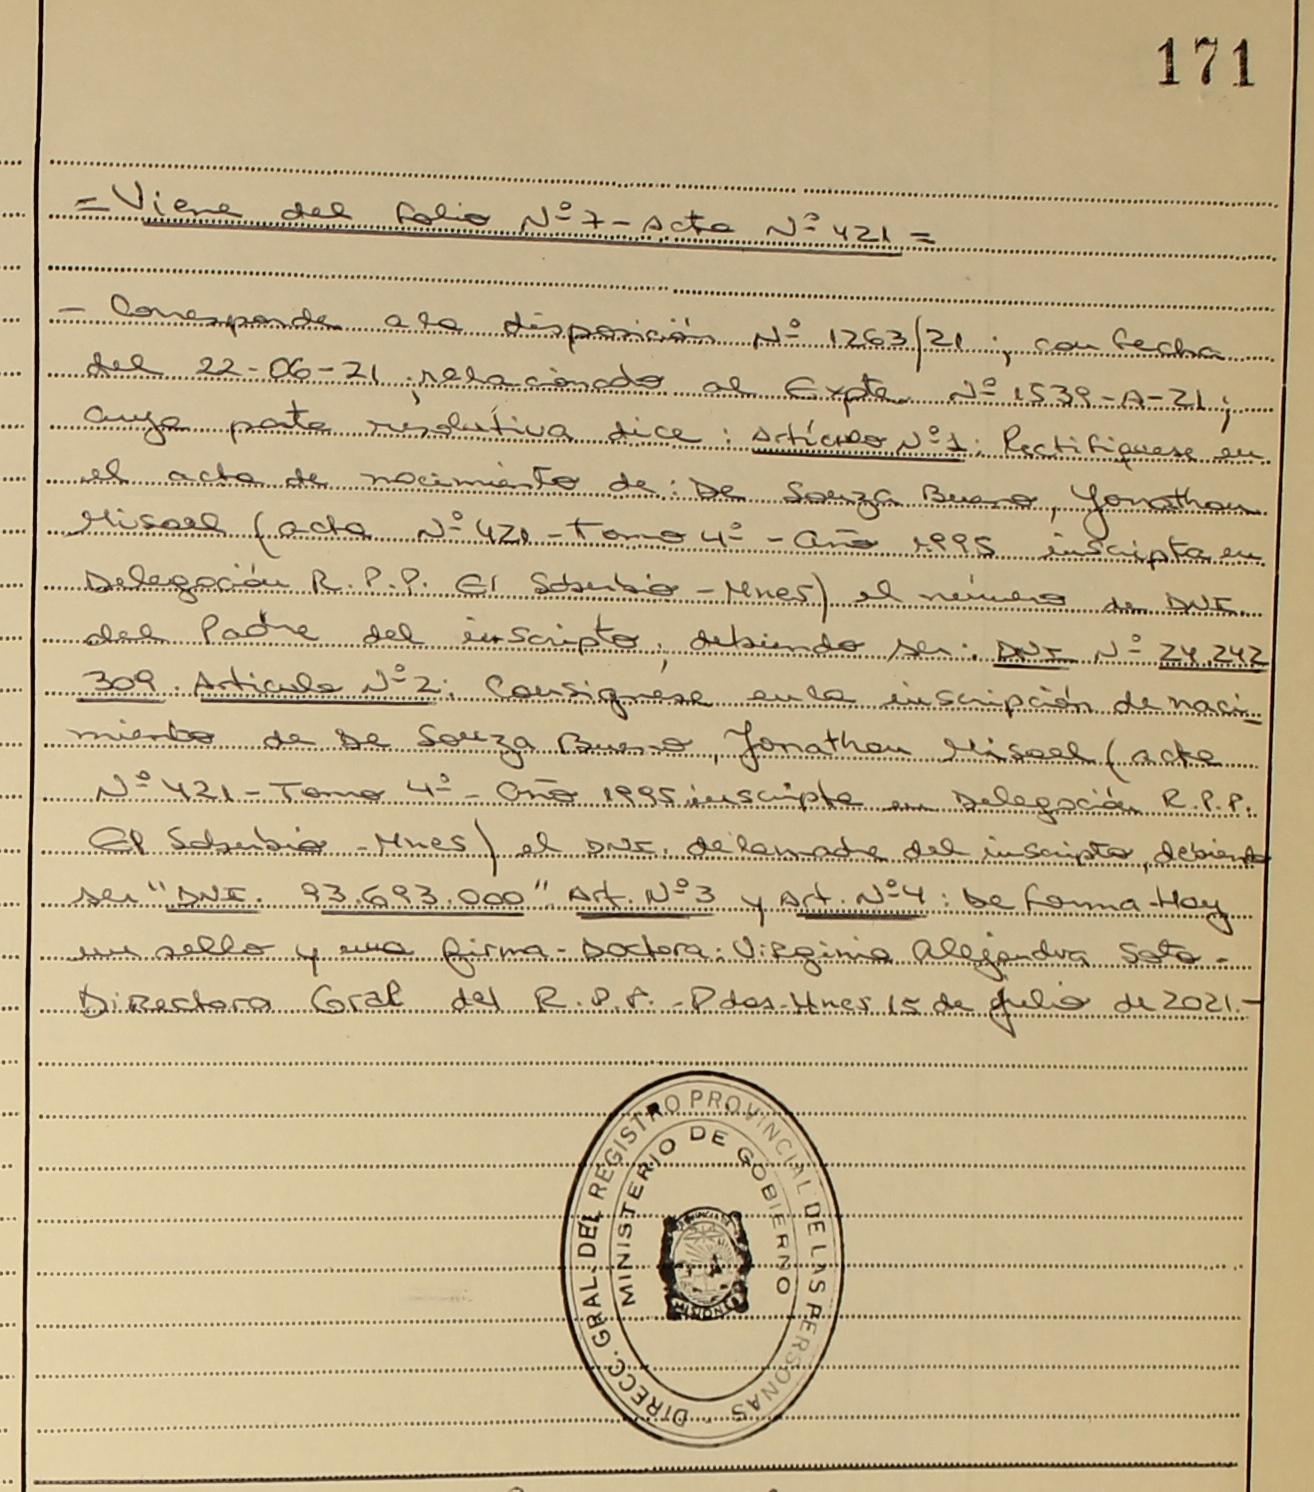 171
= Viene del folio Nº 7 - Acta Nº 421 =
- Corresponde a la disposición Nº 1263/21 ; con fecha
del 22-06-21 ; relacionado al Expte. Nº 1539-A-21 ;
cuya parte resolutiva dice : Artículo Nº 1 : Rectifiquese en
el acta de nacimiento de : De Souza Bueno, Jonathan
Misael (acta Nº 421 - Tomo 4º - Año 1995 inscripta en
Delegación R.P.P. El Soberbio - Mnes) el número de DNI.
del Padre del inscripto ; debiendo ser : DNI Nº 24.242
309 . Articulo Nº 2 : Consignese en la inscripción de naci-
miento de De Souza Bueno, Jonathan Misael (acta
Nº 421 - Tomo 4º - Año 1995 inscripta en Delegación R.P.P.
El Soberbio - Mnes) el DNI. de la madre del inscripto, debiendo
ser "DNI. 93.693.000" Art. Nº 3 y Art. Nº 4 : De forma - Hay
un sello y una firma - Doctora : Virginia Alejandra Soto -
Directora Gral del R.P.P. - Pdas - Mnes 15 de Julio de 2021.-
DIRECC. GRAL. DEL REGISTRO PROVINCIAL DE LAS PERSONAS
MINISTERIO DE GOBIERNO
MISIONES